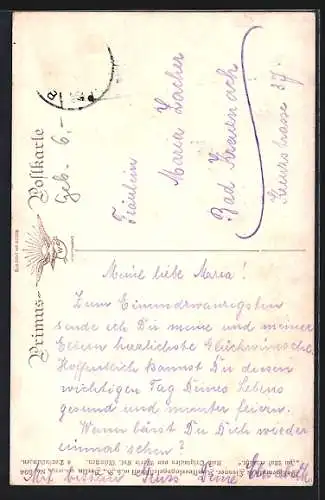 Primus-Postkarte
Geb. 6,-
Fräulein
Maria Lacher
Bad Kreuznach
Kreuzstrasse 37.
Meine liebe Maria!
Zum Einundzwanzigsten
sende ich Dir meine und meiner
Eltern herzlichste Glückwünsche.
Hoffentlich kannst Du diesen
wichtigen Tag Deines Lebens
gesund und munter feiern.
Wann lässt Du Dich wieder
einmal sehen?
Mit bestem Kuss Deine